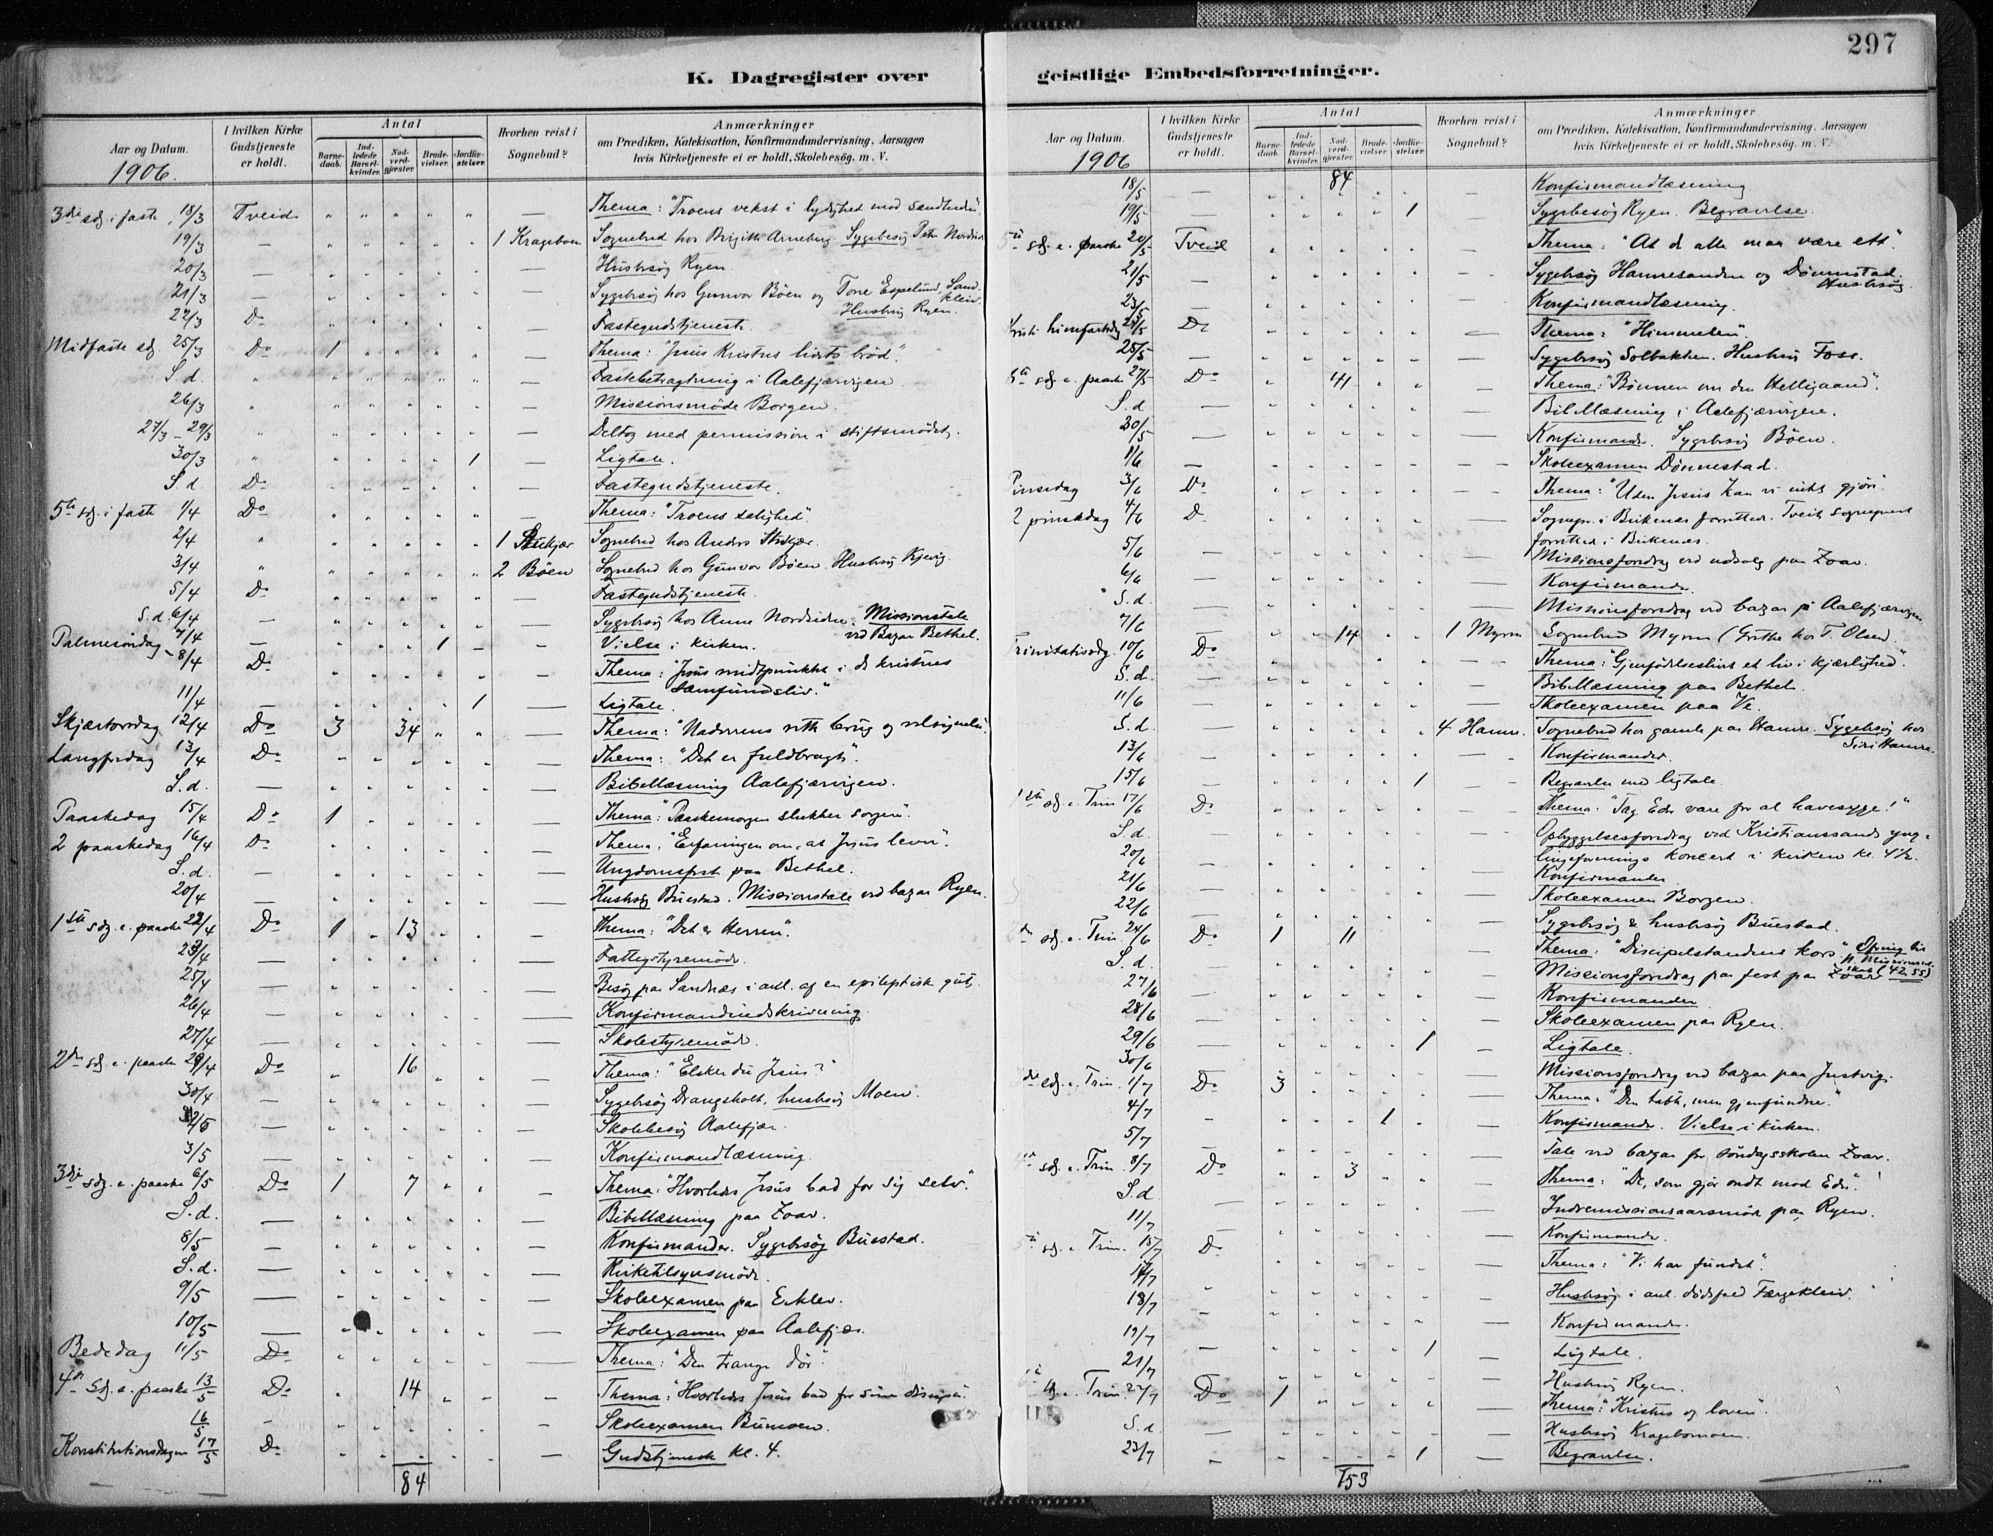 297
K. Dagregister over
geistlige Embedsforretninger.
Aar og Datum.
1906.
I hvilken Kirke Gudstjeneste er holdt.
Antal
Barne-daab.
Ind-ledede Barsel-kvinder.
Nad-verd-gjæster.
Brude-vielser.
Jordfæ-stelser.
Hvorhen reist i Sognebud?
Anmærkninger
om Prædiken, Katekisation, Konfirmandundervisning, Aarsagen
hvis Kirketjeneste ei er holdt, Skolebesøg. m. V.
3die sdg. i faste 18/3 Tveid — Thema: "Troens vekst i lydighed mod sandheden".
19/3 — 1 Krageboen Sognebud hos Brigith Arneberg Sygebesøg Peter Nordsid
20/3 — — Husbesøg Ryen.
21/3 — — Sygebesøg hos Gunvor Böen og Torre Espelund, Sandkleiv. Husbesøg Ryen.
22/3 Do — Fastegudstjeneste.
Midfaste sdg. 25/3 Do 1 — Thema: "Jesus Kristus livets brød".
S.d. " — Fastebetragtning i Aalefjærvigen
26/3 " — Missionsmøde Borgen.
27/3 - 29/3 " — Deltog med permission i stiftsmødet.
30/3 " 1 — Ligtale.
S.d. Do — Fastegudstjeneste.
5te sdg. i faste 1/4 Do — Thema: "Troens salighed".
2/4 " 1 Stukjær Sognebud hos Anders Stukjær.
3/4 " 2 Böen Sognebud hos Gunvor Böen. Husbesøg Kjevig.
5/4 Do — Fastegudstjeneste.
S.d. 6/4 — — Sygebesøg hos Anne Nordsiden. Missionstale ved Bazar Bethel.
7/4 — 1 — Vielse i kirken.
Palmesöndag 8/4 Do — Thema: "Jesus midtpunktet i de kristnes samfundsliv."
11/4 — 1 — Ligtale.
Skjærtorsdag 12/4 Do 3 34 — Thema: "Nadverens rette brug og velsignelse".
Langfredag 13/4 Do — Thema: "Det er fuldbragt".
S.d. — — Bibellæsning Aalefjærvigen.
Paaskedag 15/4 Do 1 — Thema: "Paaskemorgen slukker sorgen".
2 paaskedag 16/4 Do — Thema: "Erfaringen om, at Jesus lever".
S.d. — — Ungdomsfest paa Bethel.
20/4 — — Husbesøg Buestad. Missionstale ved bazar Ryen.
1ste sdg. e. paaske 22/4 Do 1 13 — Thema: "Det er Herren".
23/4 — — Fattigstyremöde.
25/4 — — Besøg paa Sandnæs i anl. af en epileptisk gut.
26/4 — — Konfirmandindskrivning.
27/4 — — Skolestyremöde.
2den sdg. e. paaske 29/4 Do 16 — Thema: "Elsker du Jesus?"
30/4 — — Sygebesøg Drangsholt, husbesøg Moen.
2/5 — — Skolebesøg Aalefjær.
3/5 — — Konfirmandlæsning.
3die sdg. e. paaske 6/5 Do 1 7 — Thema: "Hvorledes Jesus bad for sig selv".
S.d. — — Bibellæsning paa Zoar.
8/5 — — Konfirmander. Sygebesøg Buestad.
S.d. — — Kirketilsynsmöde.
9/5 — — Skoleexamen paa Erklev.
10/5 — — Skoleexamen paa Aalefjær.
Bededag 11/5 Do — Thema: "Den trange dör".
4de sdg. e. paaske 13/5 Do 14 — Thema: "Hvorledes Jesus bad for sine disciple".
16/5 — — Skoleexamen Bumoen.
Konstitutionsdagen 17/5 Do — Gudstjeneste kl. 4.
84
Aar og Datum.
1906
I hvilken Kirke Gudstjeneste er holdt.
Antal
Barne-daab.
Ind-ledede Barsel-kvinder.
Nad-verd-gjæster.
Brude-vielser.
Jordfæ-stelser.
Hvorhen reist i Sognebud?
Anmærkninger
om Prædiken, Katekisation, Konfirmandundervisning, Aarsagen
hvis Kirketjeneste ei er holdt, Skolebesøg. m. V.
84
18/5 — — Konfirmandlæsning
19/5 — 1 — Sygebesøg Ryen. Begravelse.
5te sdg. e. paaske 20/5 Tveid — Thema: "At de alle maa være ett".
21/5 — — Sygebesøg Hamresanden og Dönnestad. Husbesøg
23/5 — — Konfirmandlæsning.
Kristi himfartsdag 24/5 Do — Thema: "Himmelen".
25/5 — — Sygebesøg Solbakken. Husbesøg Foss.
6te sdg. e. paaske 27/5 Do 41 — Thema: "Bönnen om den Helligaand".
S.d. — — Bibellæsning i Aalefjærvigen.
30/5 — — Konfirmander. Sygebesøg Böen.
1/6 — — Skoleexamen Dönnestad.
Pinsedag 3/6 Do — Thema: "Uden Jesus kan vi intet gjöre".
2 pinsedag 4/6 D — Sognepr. i Birkenes forretted. Tveits sogneprest forretted i Birkenes.
5/6 — — Missionsforedrag ved udsalg paa Zoar.
6/6 — — Konfirmander.
S.d. — — Missionsforedrag ved bazar på Aalefjærvigen
7/6 — 14 1 Myren Sognebud Myren (Grethe hos T. Olsen).
Trinitatissdg. 10/6 Do — Thema: "Gjenfödelseslivet et liv i kjærlighed".
S.d. — — Bibellæsning paa Bethel.
11/6 — — Skoleexamen paa Ve.
S.d. — 4 Hamre. Sognebud hos gamle paa Hamre. Sygebesøg hos Siri Hamre.
13/6 — — Konfirmander.
15/6 — 1 — Begravelse med ligtale
1ste sdg. e. Trin. 17/6 Do — Thema: "Tag Eder vare for al havesyge!"
S.d. — — Opbyggelsesforedrag ved Kristianssands yng-lingeforenings koncert i kirken kl. 4½.
20/6 — — Konfirmander
21/6 — — Skoleexamen Borgen.
22/6 — — Sygebesøg & husbesøg Buestad.
sdg. e. Trin. 24/6 Do 1 11 — Thema: "Discipelstandens kors".
S.d. — — Missionsforedrag paa fest paa Zoar
27/6 — — Konfirmander
28/6 — — Skoleexamen paa Ryen.
29/6 — 1 — Ligtale.
30/6 — — Missionsforedrag ved bazar paa Justvig.
sdg. e. Trin. 1/7 Do 3 — Thema: "Den tabte, men gjenfundne."
4/7 — 1 — Konfirmander. Vielse i kirken.
5/7 — — Tale ved bazar for söndagsskolen Zoar.
sdg. e. Trin. 8/7 Do 3 — Thema: "De, som gjör ondt mod Eder".
S.d — — Indremissionsaarsmöde paa Ryen.
11/7 — — Konfirmander
5te sdg. e. Trin. 15/7 Do — Thema: "Vi har fundet".
17/7 — Husbesøg i anl. dödsfald Færgekleiv.
18/7 — — Konfirmander.
19/7 — 1 — Ligtale.
21/7 — — Husbesøg Ryen.
sdg. e. Trin. 22/7 Do 1 — Thema: "Kristus og loven".
S.d. — — Husbesøg Krageboemoen.
23/7 — 1 — Begravelse.
153